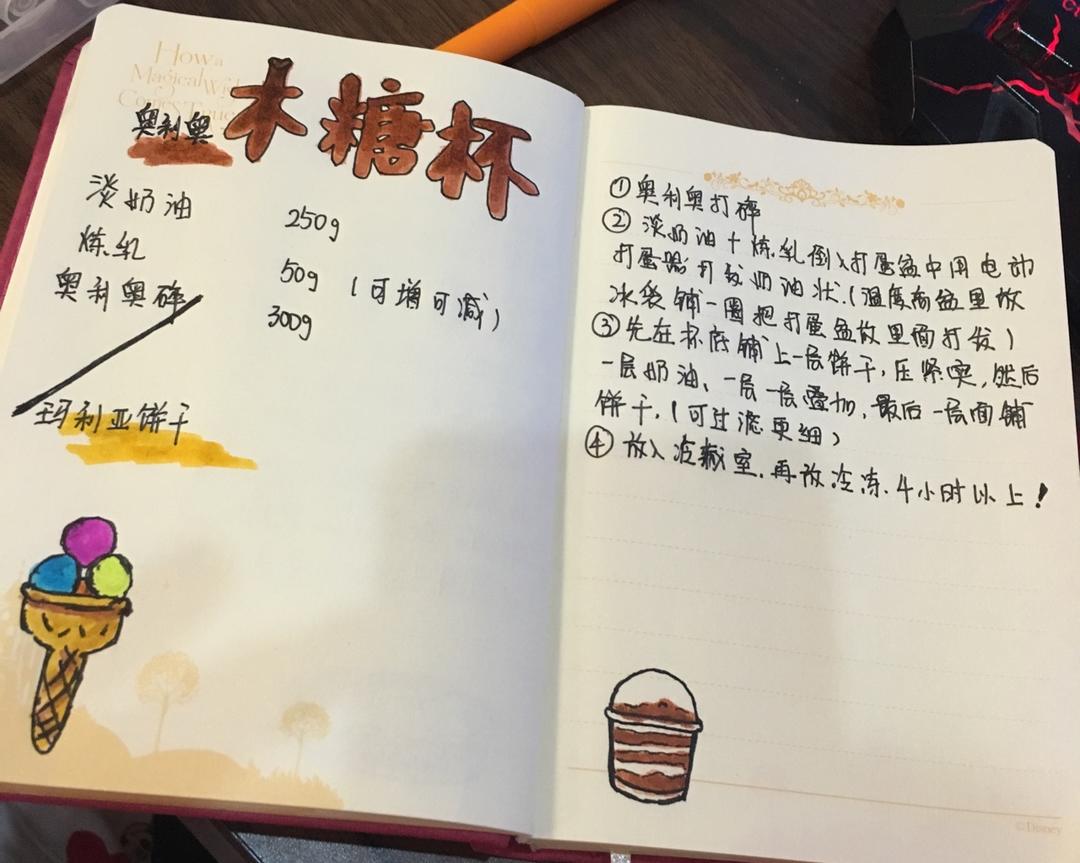 How a
Magical Wi
Comes True
奥利奥
木糖杯
淡奶油 250g
炼乳 50g (可增可减)
奥利奥碎 300g
玛利亚饼干
①奥利奥打碎
② 淡奶油+炼乳倒入打蛋盆中用电动
打蛋器打发奶油状.(温度高盆里放
冰袋铺一圈把打蛋盆放里面打发)
③先在杯底铺上一层饼干,压紧实,然后
一层奶油、一层一层叠加,最后一层面铺
饼干.(可过滤更细)
④ 放入冷藏室.再放冷冻.4小时以上!
©Disney